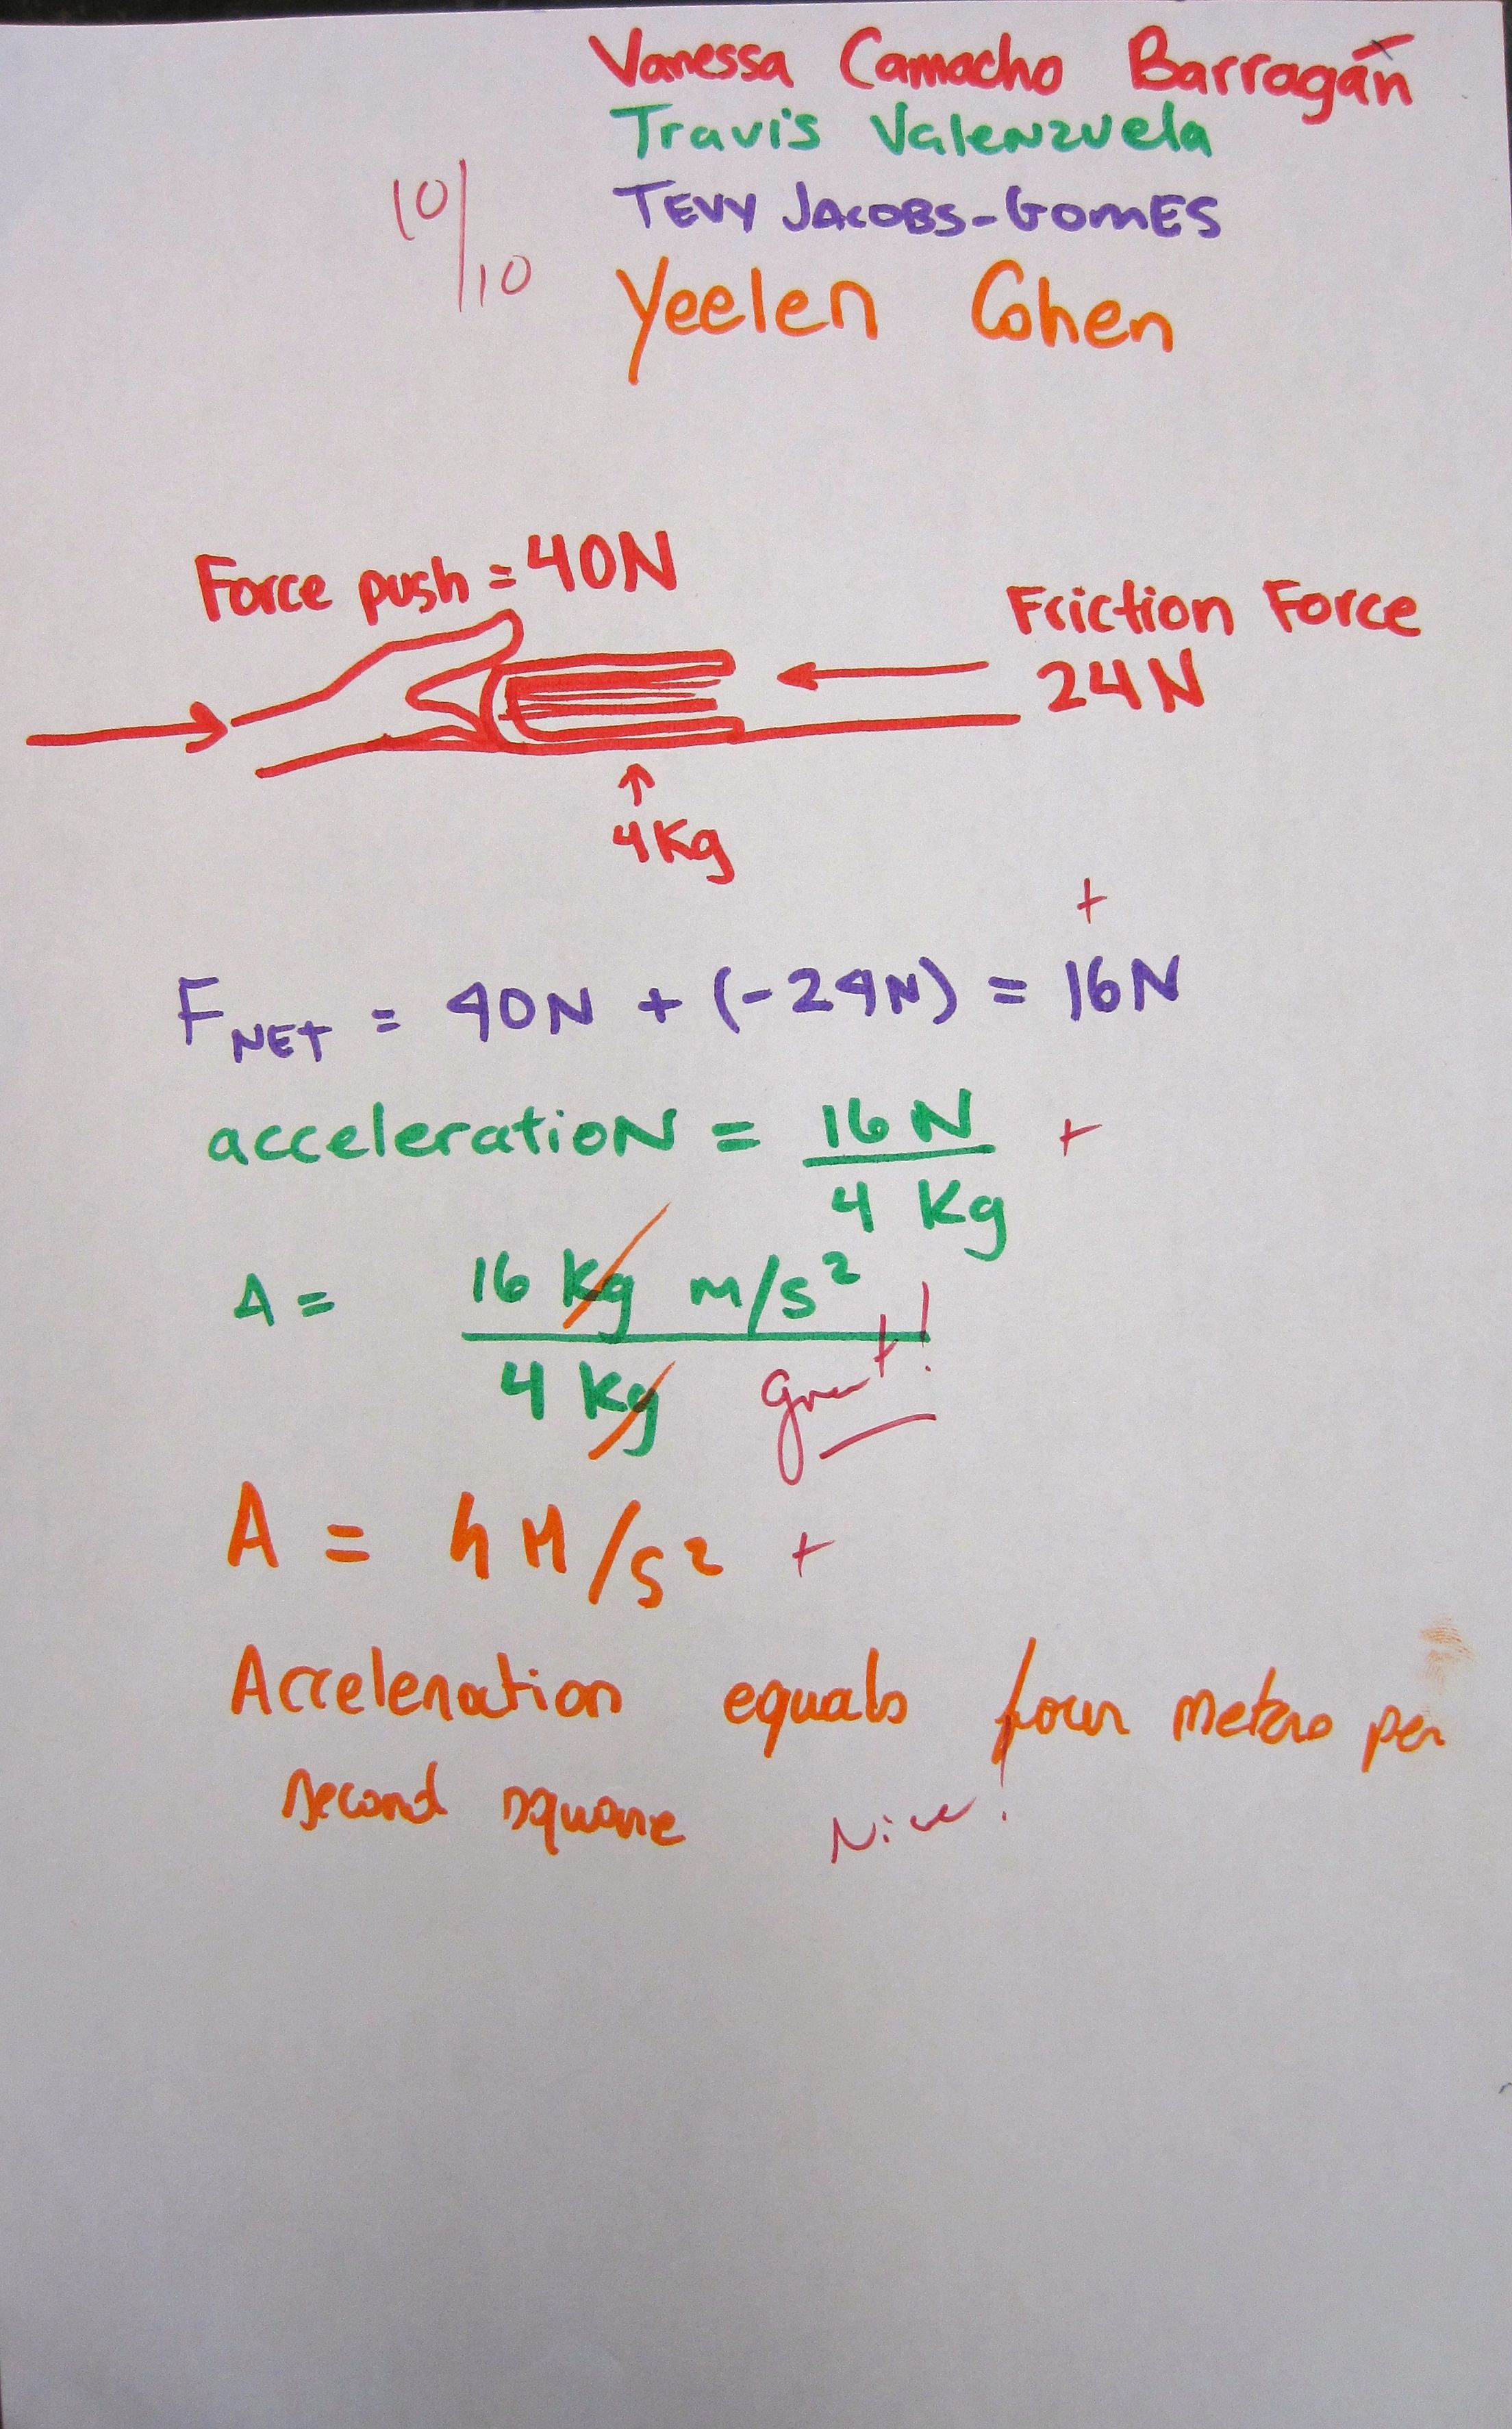 Vanessa Camacho Barragán
Travis Valenzuela
10/10
TEVY JACOBS-GOMES
Yeelen Cohen
Force push = 40N
Friction Force
24N
4Kg
+
F NET = 40N + (-24N) = 16N
acceleration = 16N / 4 Kg +
A = 16 kg m/s² / 4 kg
great!
A = 4 M/s² +
Acceleration equals four meters per
second square Nice!